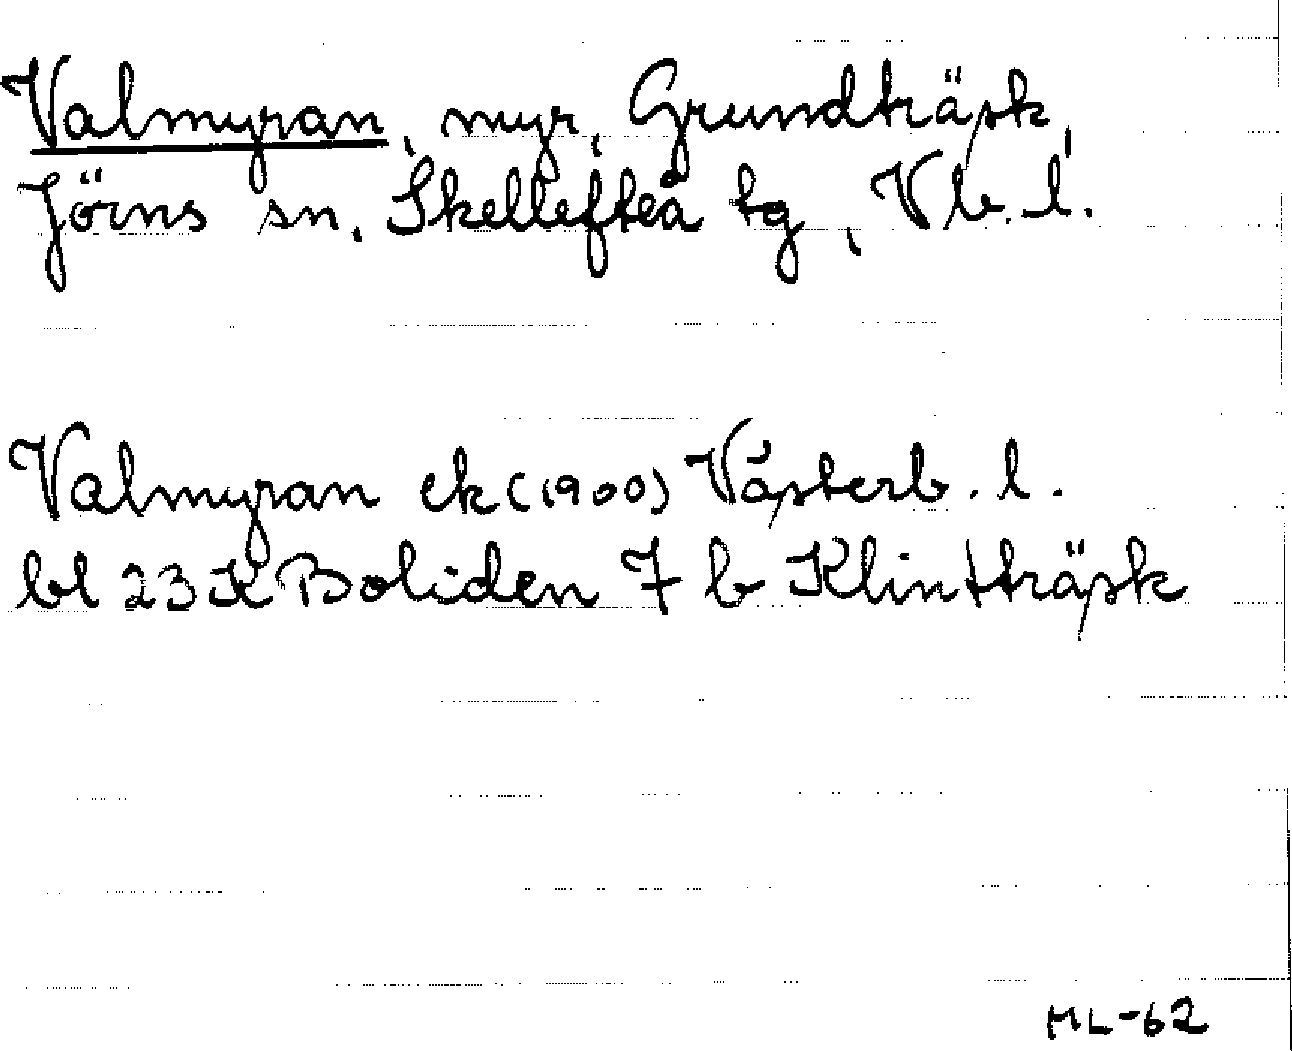 Valmyran, myr, Grundträsk,
Jörns sn, Skellefteå tg, Vb. l.
Valmyran ek (1900) Västerb. l.
bl 23 K Boliden 7 b Klintträsk
ML-62